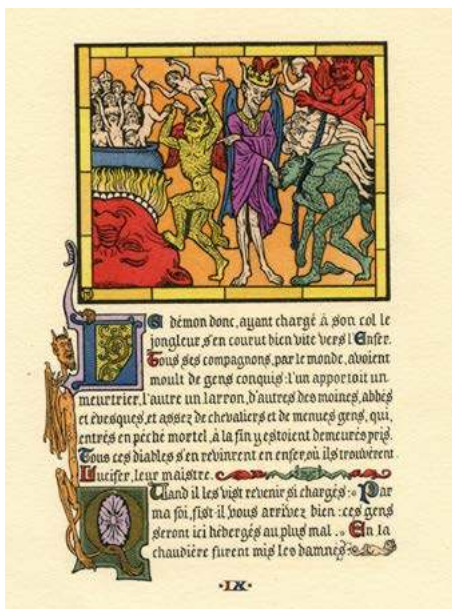 LE démon donc, ayant chargé à son col le
jongleur, s'en courut bien vite vers l'Enfer.
Tous ses compagnons, par le monde, avoient
moult de gens conquis: l'un apportoit un
meurtrier, l'autre un larron, d'autres des moines, abbés
et évesques, et assez de chevaliers et de menues gens, qui,
entrés en péché mortel, à la fin y estoient demeurés pris.
Tous ces diables s'en revinrent en enfer, où ils trouvèrent
Lucifer, leur maistre.
QUand il les vist revenir si chargés: « Par
ma foi, fist-il, vous arrivez bien: ces gens
seront ici hébergés au plus mal. » En la
chaudière furent mis les damnés
·IX·